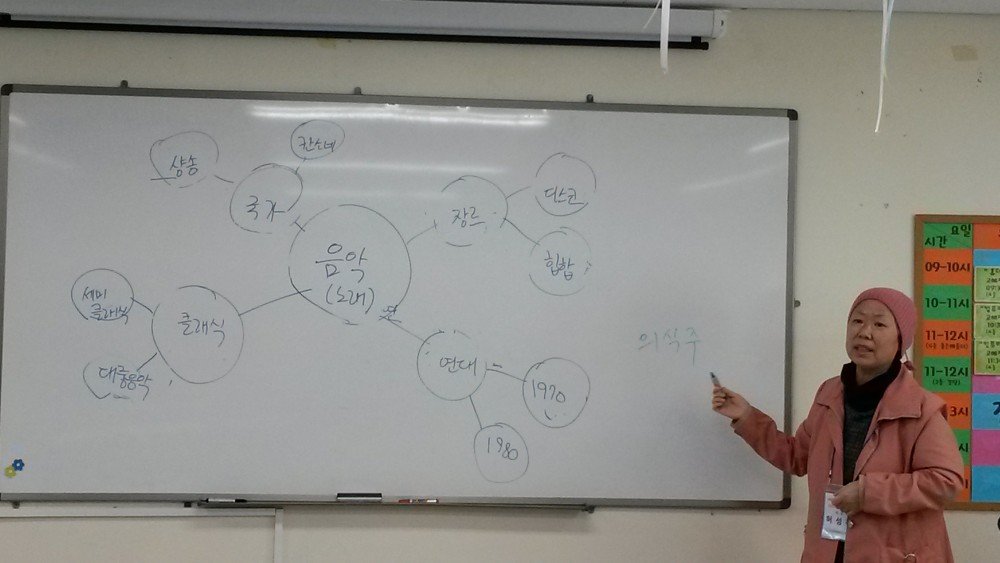 칸소네
샹송
국가
장르
디스코
힙합
음악
(노래)
세미
클래식
클래식
대중음악
연대
1970
1980
의식주
요일
시간
09-10시
10-11시
11-12시
11-12시
3시